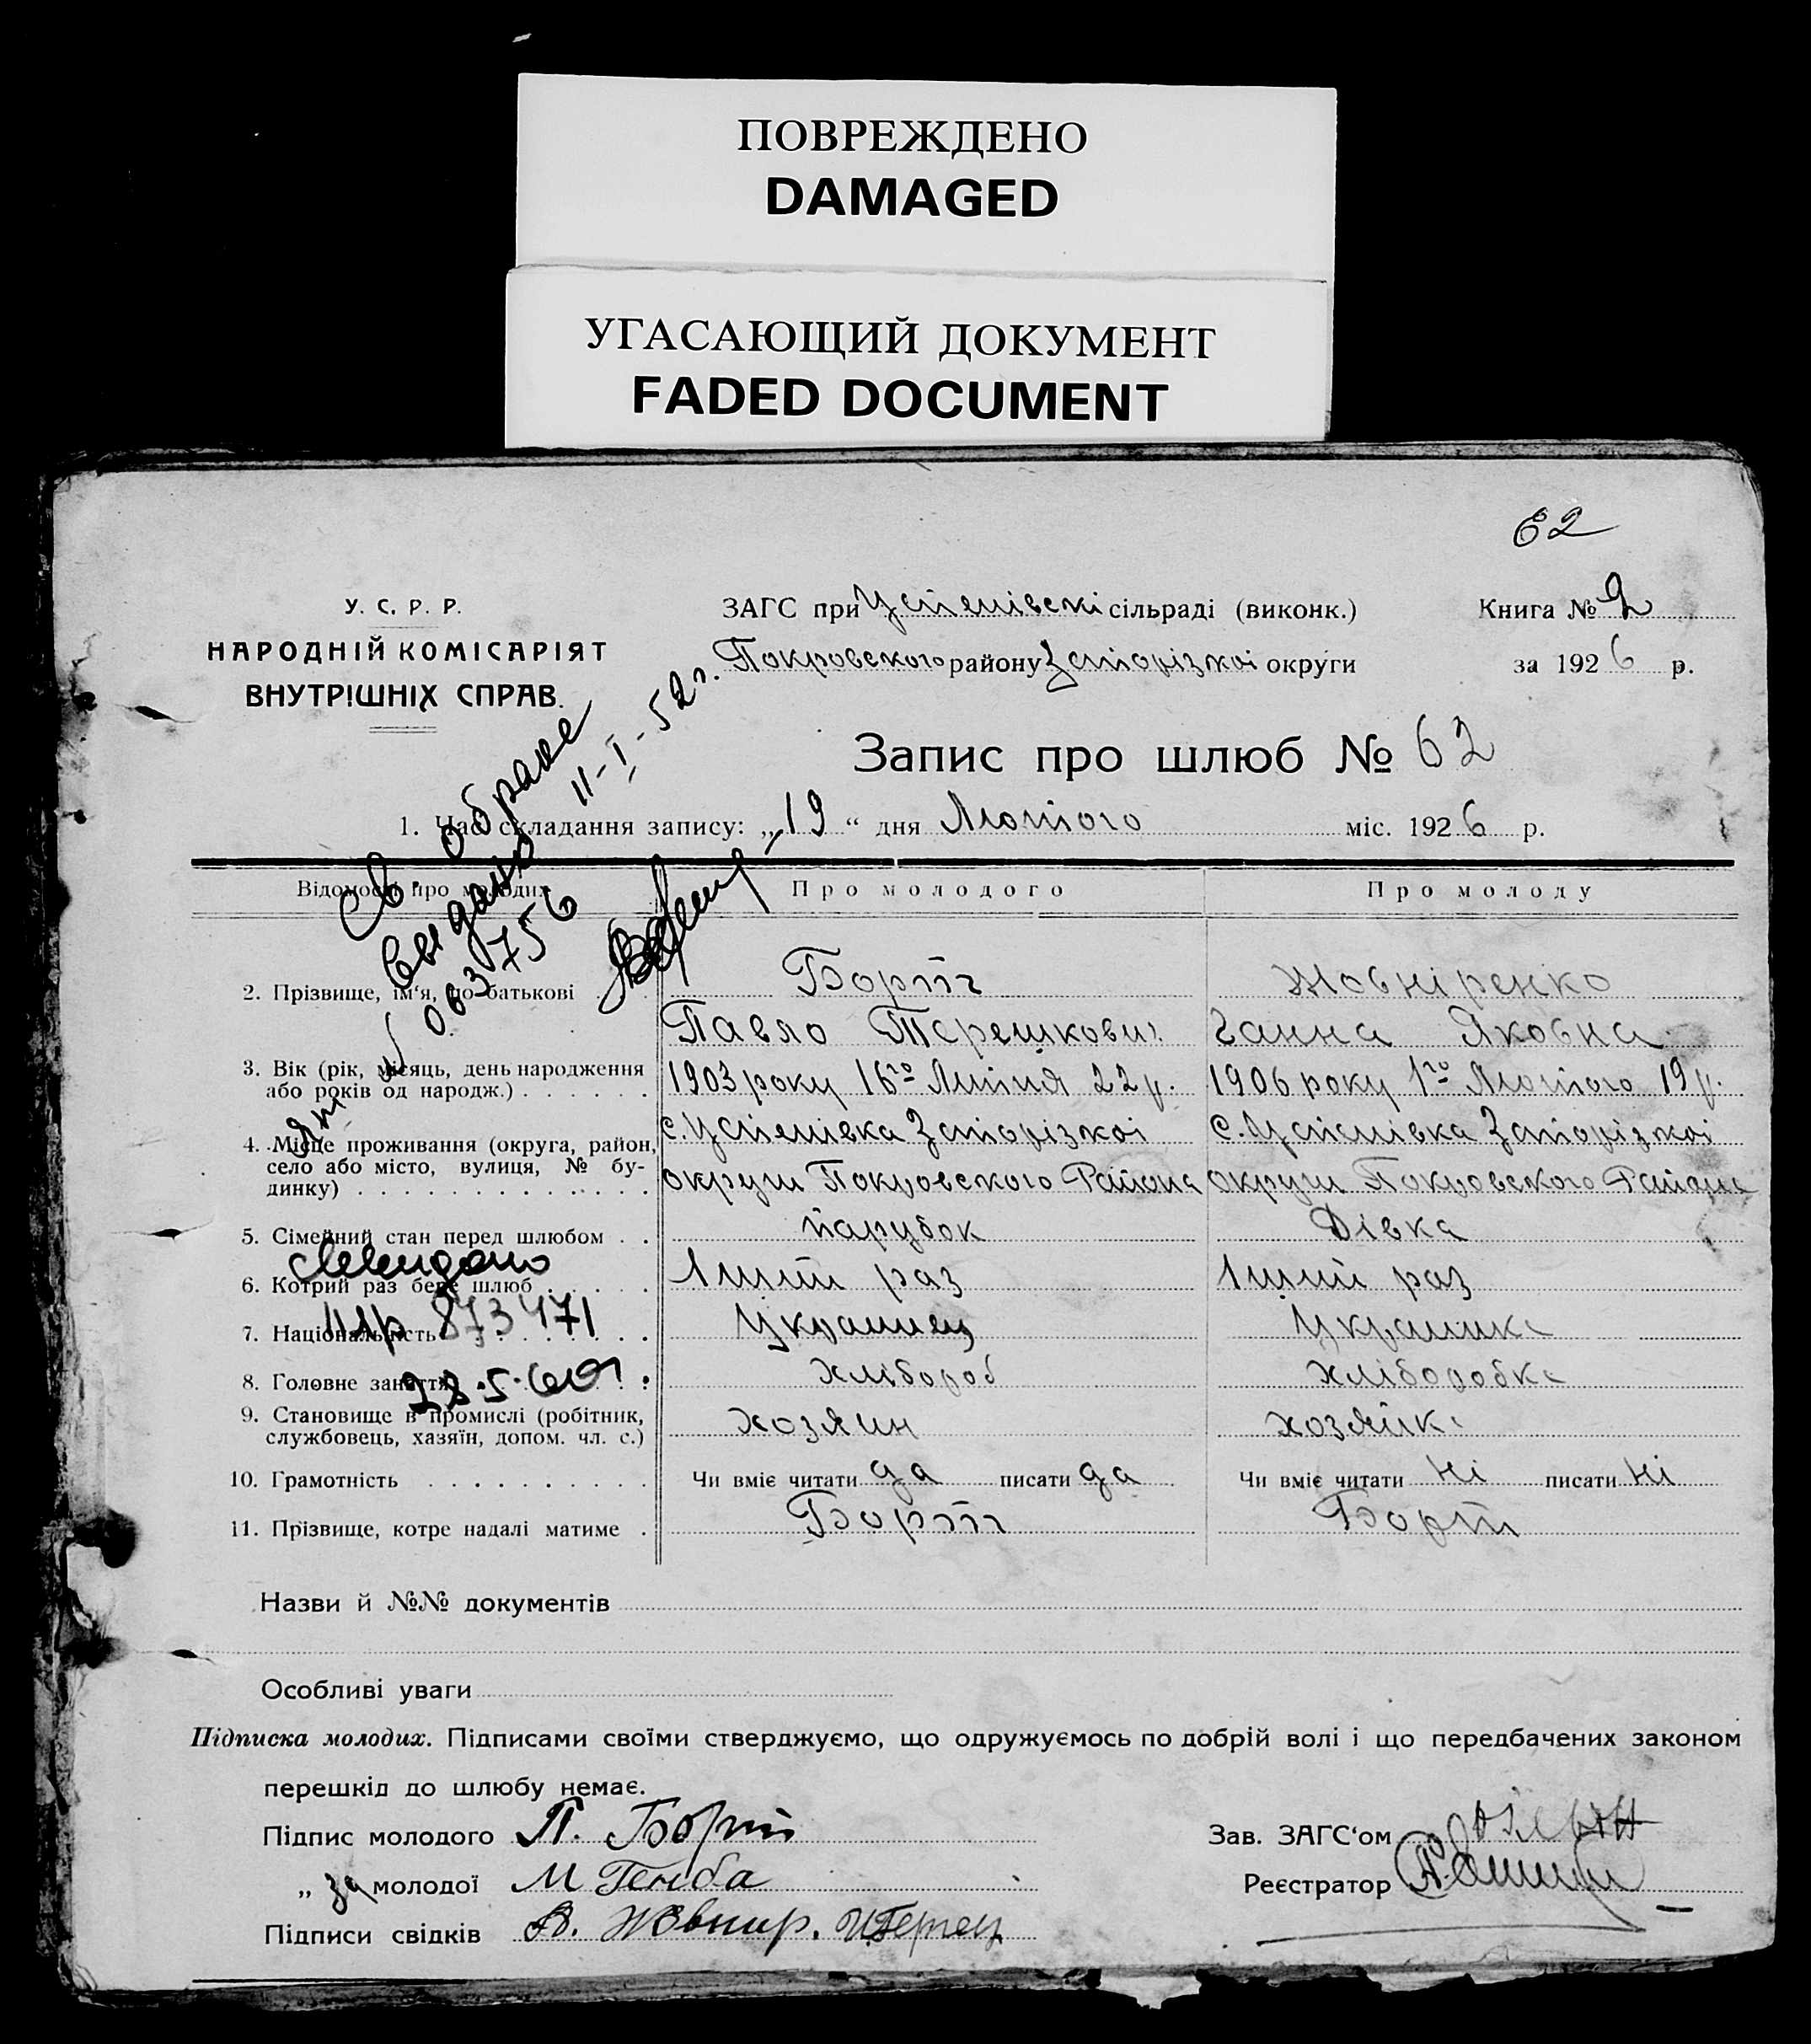 ПОВРЕЖДЕНО
DAMAGED
УГАСАЮЩИЙ ДОКУМЕНТ
FADED DOCUMENT
62
У. С. Р. Р.
НАРОДНІЙ КОМІСАРІЯТ
ВНУТРІШНІХ СПРАВ.
ЗАГС при Успенівскі сільраді (виконк.)
Покровского району Запорізкоі округи
Книга № 2
за 1926 р.
Запис про шлюб № 62
1. Час складання запису: „19“ дня Лютого міс. 1926 р.
Св. о браке
выдано 11-I-52 г.
№ 063756
Відомості про молодих
Про молодого
Про молоду
2. Прізвище, ім'я, по-батькові
Борт
Жовніренко
Павло Терешкович
Ганна Яковна
3. Вік (рік, місяць, день народження
або років од народж.)
1903 року 16го Липня 22 р.
1906 року 1го Лютого 19 р.
4. Місце проживання (округа, район,
село або місто, вулиця, № бу-
динку)
с. Успенівка Запорізкоі
округи Покровского Района
с. Успенівка Запорізкоі
округи Покровского Района
5. Сімейний стан перед шлюбом
парубок
Дівка
6. Котрий раз бере шлюб
1ший раз
1ший раз
7. Національність
Украинец
Украинка
873471
8. Головне заняття
хлібороб
хліборобка
28.5.60 г.
9. Становище в промислі (робітник,
службовець, хазяїн, допом. чл. с.)
хозяин
хозяйка
10. Грамотність
Чи вміє читати да писати да
Чи вміє читати ні писати ні
11. Прізвище, котре надалі матиме
Борт
Борт
Назви й №№ документів
Особливі уваги
Підписка молодих. Підписами своїми стверджуємо, що одружуємось по добрій волі і що передбачених законом
перешкід до шлюбу немає.
Підпис молодого П. Борт
„ за молодої М Генба
Підписи свідків
Зав. ЗАГС'ом
Реєстратор